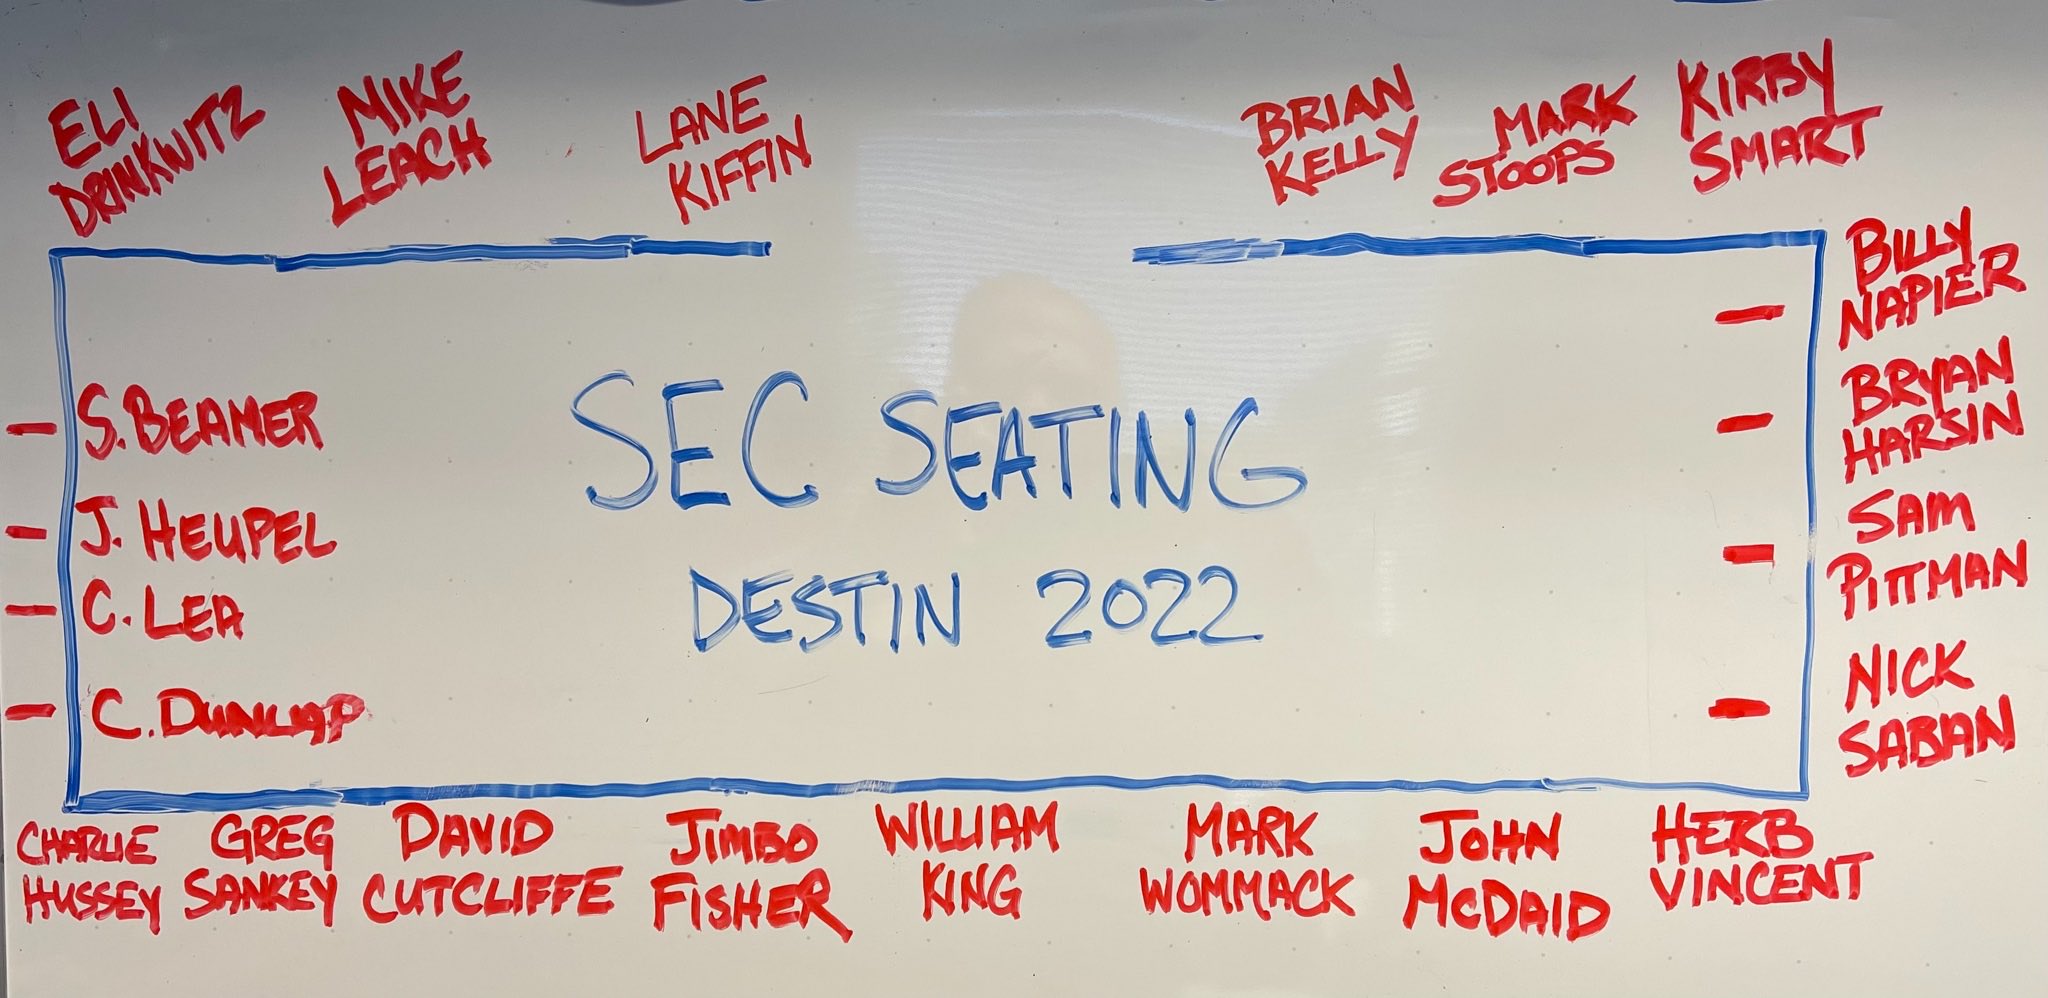 ELI
DRINKWITZ
MIKE
LEACH
LANE
KIFFIN
BRIAN
KELLY
MARK
STOOPS
KIRBY
SMART
BILLY
NAPIER
BRYAN
HARSIN
SAM
PITTMAN
NICK
SABAN
S. BEAMER
J. HEUPEL
C. LEA
C. DUNLAP
SEC SEATING
DESTIN 2022
CHARLIE
HUSSEY
GREG
SANKEY
DAVID
CUTCLIFFE
JIMBO
FISHER
WILLIAM
KING
MARK
WOMMACK
JOHN
MCDAID
HERB
VINCENT